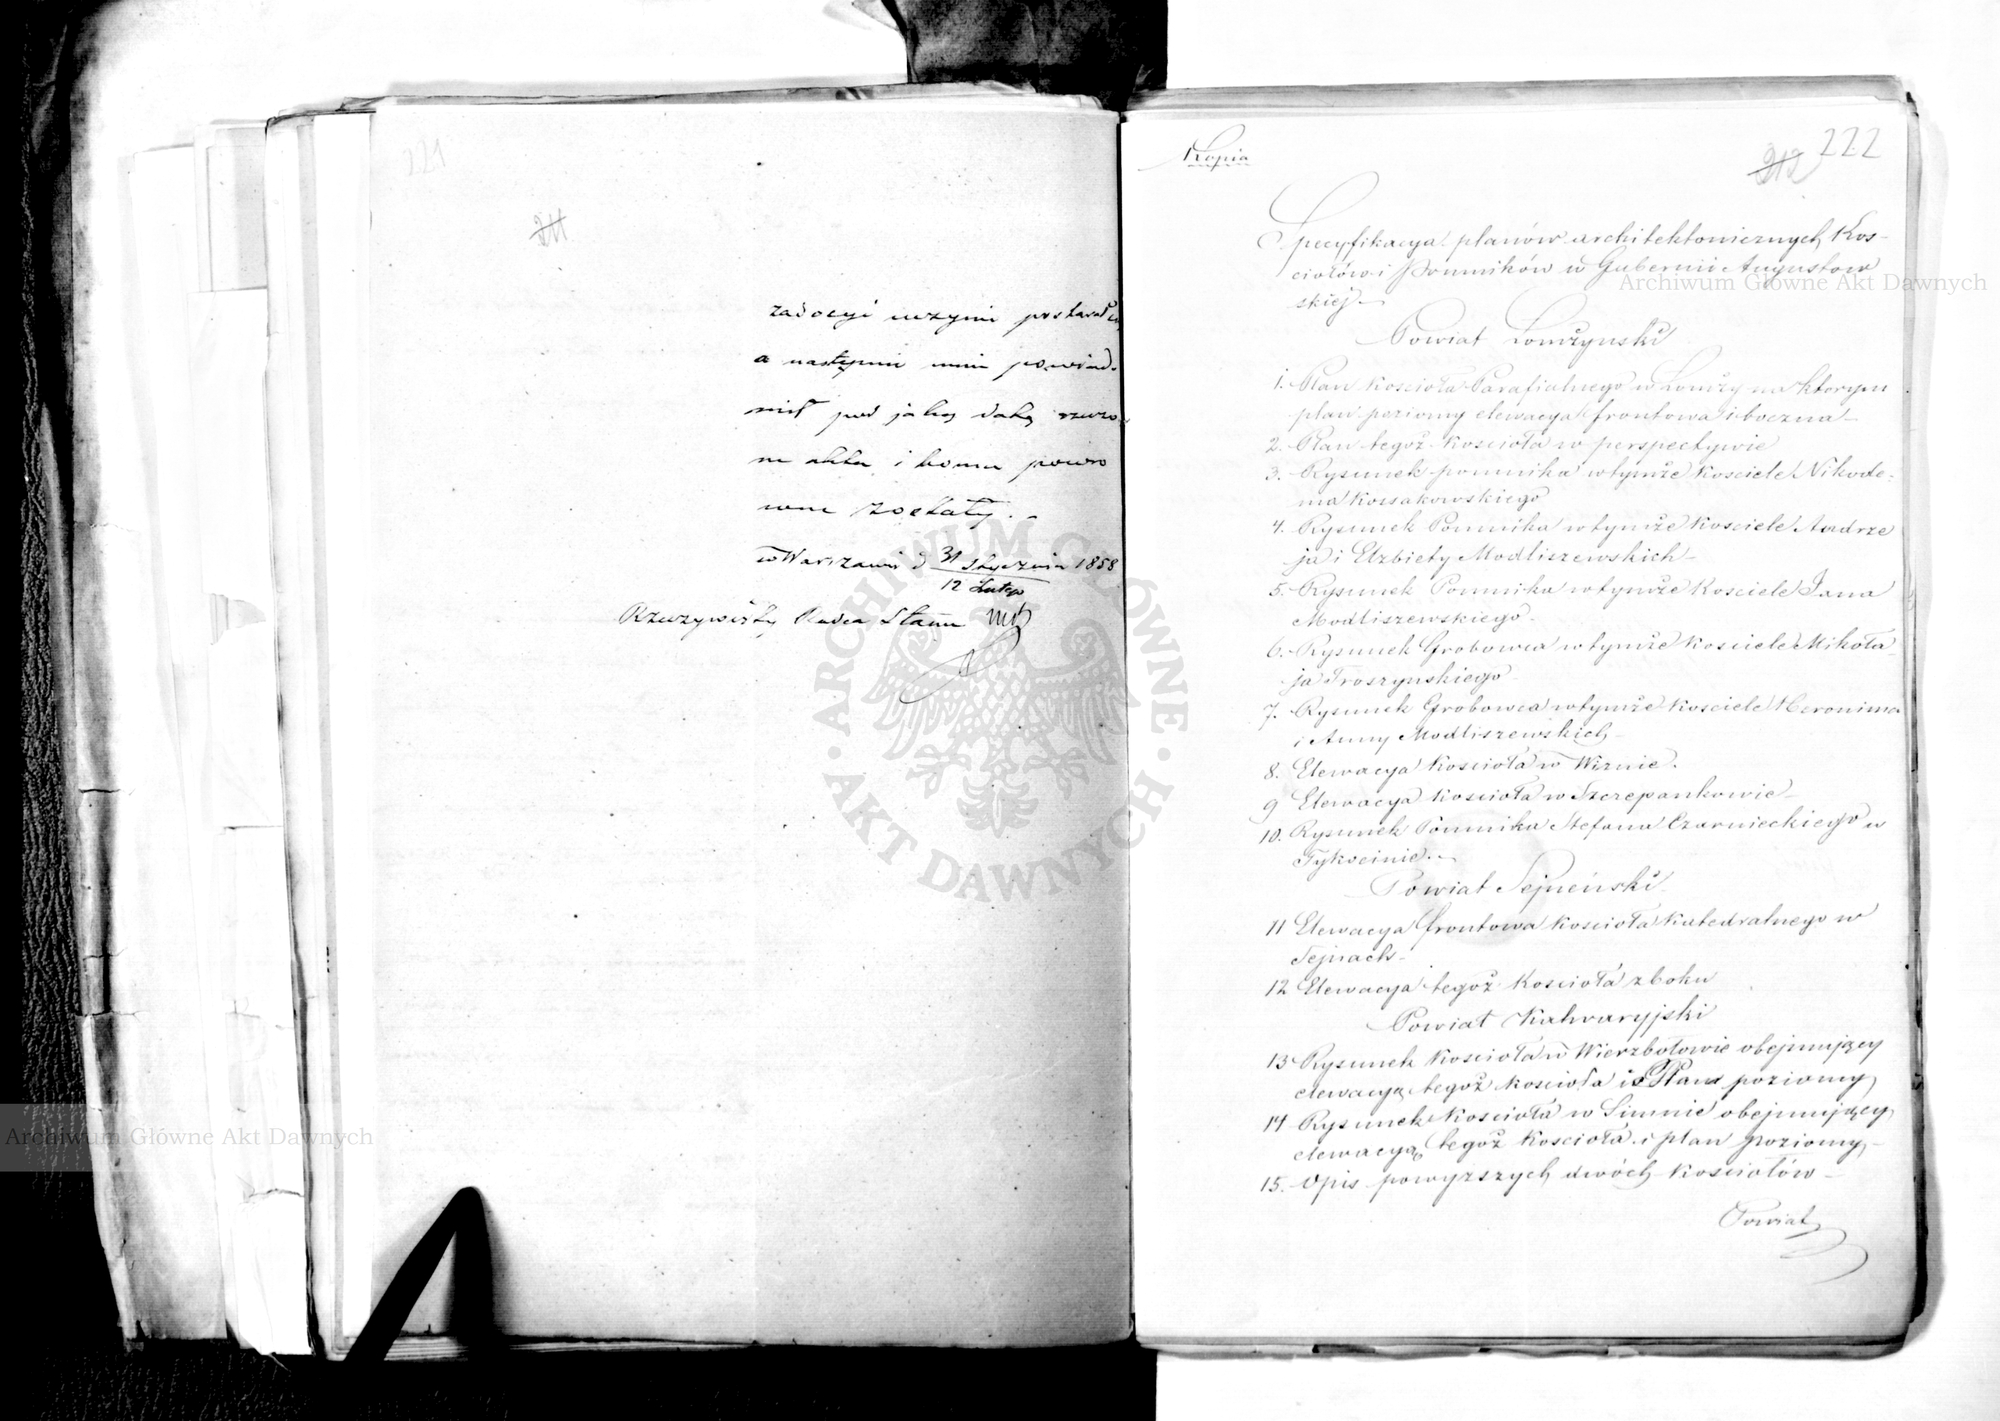 221
211
zadosyć uczynić postarał się,
a następnie mnie powiado-
mił pod jaką datą rzeczo-
ne akta i komu powró
cone zostały. –
w Warszawie d 31 Stycznia 1858
12 Lutego
Rzeczywisty Radca Stanu
Kopia
212 222
Specyfikacya planów architektonicznych Kos-
ciołów i Pomników w Gubernii Augustow
skiej. –
Powiat Łomżynski
1. Plan Kościoła Parafialnego w Łomży na ktorym
plan poziomy elewacya frontowa i boczna –
2. Plan tegoż Kościoła w perspectywie
3. Rysunek pomnika w tymże Kościele Nikode-
ma Kossakowskiego
4. Rysunek Pomnika w tymże Kościele Andrze
ja i Elżbiety Modliszewskich –
5. Rysunek Pomnika w tymże Kościele Jana
Modliszewskiego.
6. Rysunek Grobowca w tymże Kościele Mikoła-
ja Troszynskiego
7. Rysunek Grobowca w tymże Kościele Heronima
i Anny Modliszewskich –
8. Elewacya Kościoła w Wiznie.
9 Elewacya Kościoła w Szczepankowie –
10. Rysunek Pomnika Stefana Czarnieckiego w
Tykocinie. –
Powiat Sejneński
11 Elewacya frontowa Kościoła Katedralnego w
Sejnach –
12 Elewacya tegoż Kościoła z boku
Powiat Kalwaryjski
13 Rysunek Kościoła w Wierzbołowie obejmujący
elewacyą tegoż Kościoła i Plan poziomy
14 Rysunek Kościoła w Simnie obejmujący
elewacyą tegoż Kościoła i plan poziomy –
15. Opis powyższych dwóch Kościołów –
Powiat
Archiwum Główne Akt Dawnych
Archiwum Główne Akt Dawnych
ARCHIWUM GŁÓWNE · AKT DAWNYCH ·